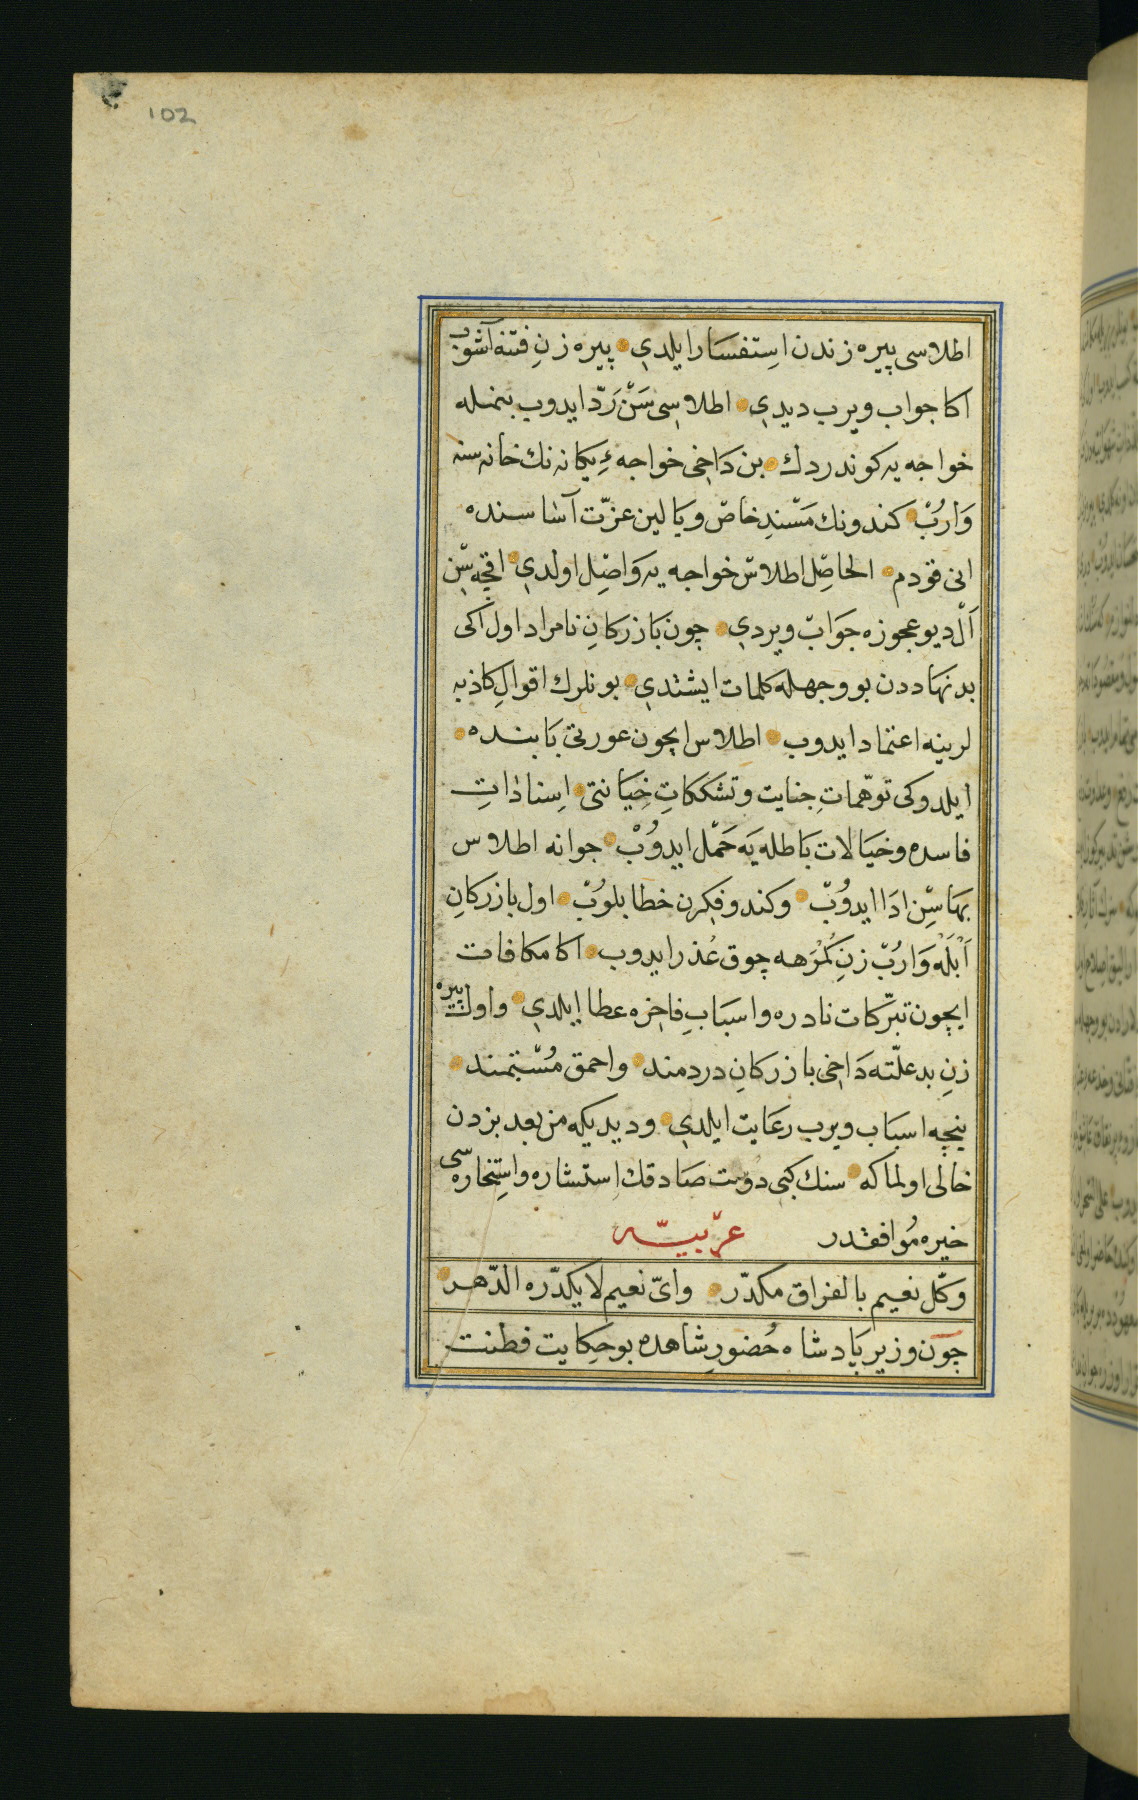 102
اطلاسی پیره زندن اِستفسار ایلدیِ پیره زنِ فتنه آشوب
اكا جواب ویرب دیدیِ اطلاسِی سَنْ رَدّ ایدوب بنمله
خواجه یه كوندردك بن دَاخِی خواجهءِ یكانه نك خانه سنه
وَارُبْ كندونك مَسْندِ خاصّ و یَالین عزّت آشا سنده
انی قودم الحاصِّل اطلاسّ خواجه یه وَاصِّل اولدیِ اقچه سِّن
اَلْدیو عجوزه جَوَابّ ویردیِ چون بَازركانِ نامراد اول اكی
بد نهاددن بو وجهله كلمات ایشتدیِ بونلرك اقوالِ كاذبه
لرینه اعتماد ایدوب اطلاس ایچون عورتی بَابنده
ایلدوكی توهّماتِ جنایت و تشككاتِ خِیَانتی اِسناداتِ
فاسده و خیَالات بَاطله یَه حَمّل ایدوُبْ جوانه اطلاس
بهَاسِّن ادَا ایدوُبّ و كندو فِكرن خطا بلوُبّ اول بازركانِ
اَبْلَهْ وَارُبّ زنِ كُمْرَهه چوق عُذر ایدوب اكا مكافات
ایچون تبرّكات نادره و اسبَابِ فاخِره عطا ایلدیِ و اول پیره
زنِ بد علّته دَاخِی بازركانِ دردمند و احمق مُسْتمند
نیچه اسبَاب ویرب رعَایت ایلدیِ و دیدیكه من بعد بزدن
خالی اولماكه سنك كبی دوُست صَادقك اِستشاره و اِستِخاره سی
خیره مُوافقدر عرّبیّه
وكّل نعیم بالفراق مكدّر وایّ نعیم لا یكدّره الدّهر
چون وزیر پَادشاه حُضورِ شِاهده بو حِكایت فطنت